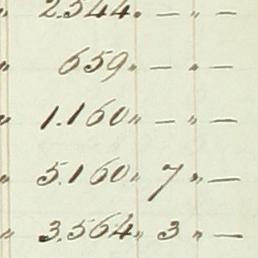 " 2.544 " — " —
" 659 " — " —
" 1.160 " — " —
" 5.160 " 7 " —
" 3.564 " 3 " —